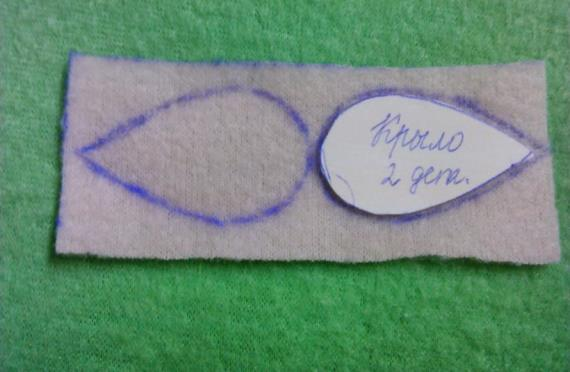 Крыло
2 дет.